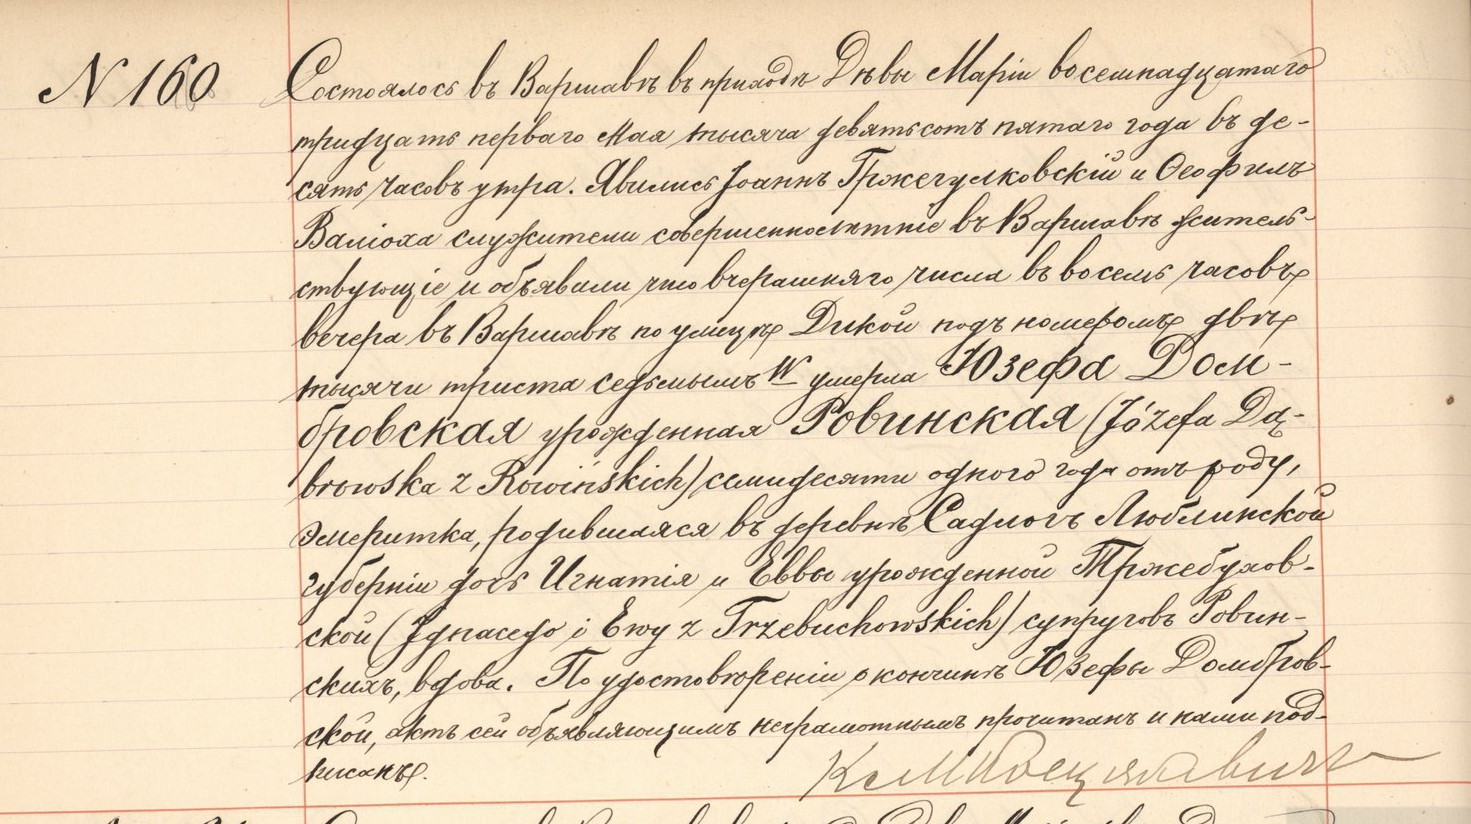 N 160
Состоялось въ Варшавѣ въ приходѣ Дѣвы Маріи восемнадцатаго
тридцать перваго Мая тысяча девятьсотъ пятаго года въ де-
сять часовъ утра. Явились Іоаннъ Гржегулковскій и Ѳеофилъ
Валіоха служители совершеннолѣтніе въ Варшавѣ житель-
ствующіе и объявили что вчерашняго числа въ восемь часовъ
вечера въ Варшавѣ по улицѣ Дикой подъ номеромъ двѣ
тысячи триста седьмымъ W умерла Юзефа Дом-
бровская урожденная Ровинская (Józefa Dą-
browska z Rowińskich) семидесяти одного года отъ роду,
эмеритка, родившаяся въ деревнѣ Садлогъ Люблинской
губерніи дочь Игнатія и Еввы урожденной Тржебухов-
ской (Ignacego i Ewy z Trzebuchowskich) супруговъ Ровин-
скихъ, вдова. По удостовѣреніи о кончинѣ Юзефы Домбров-
ской, актъ сей объявляющимъ неграмотнымъ прочитанъ и нами под-
писанъ.